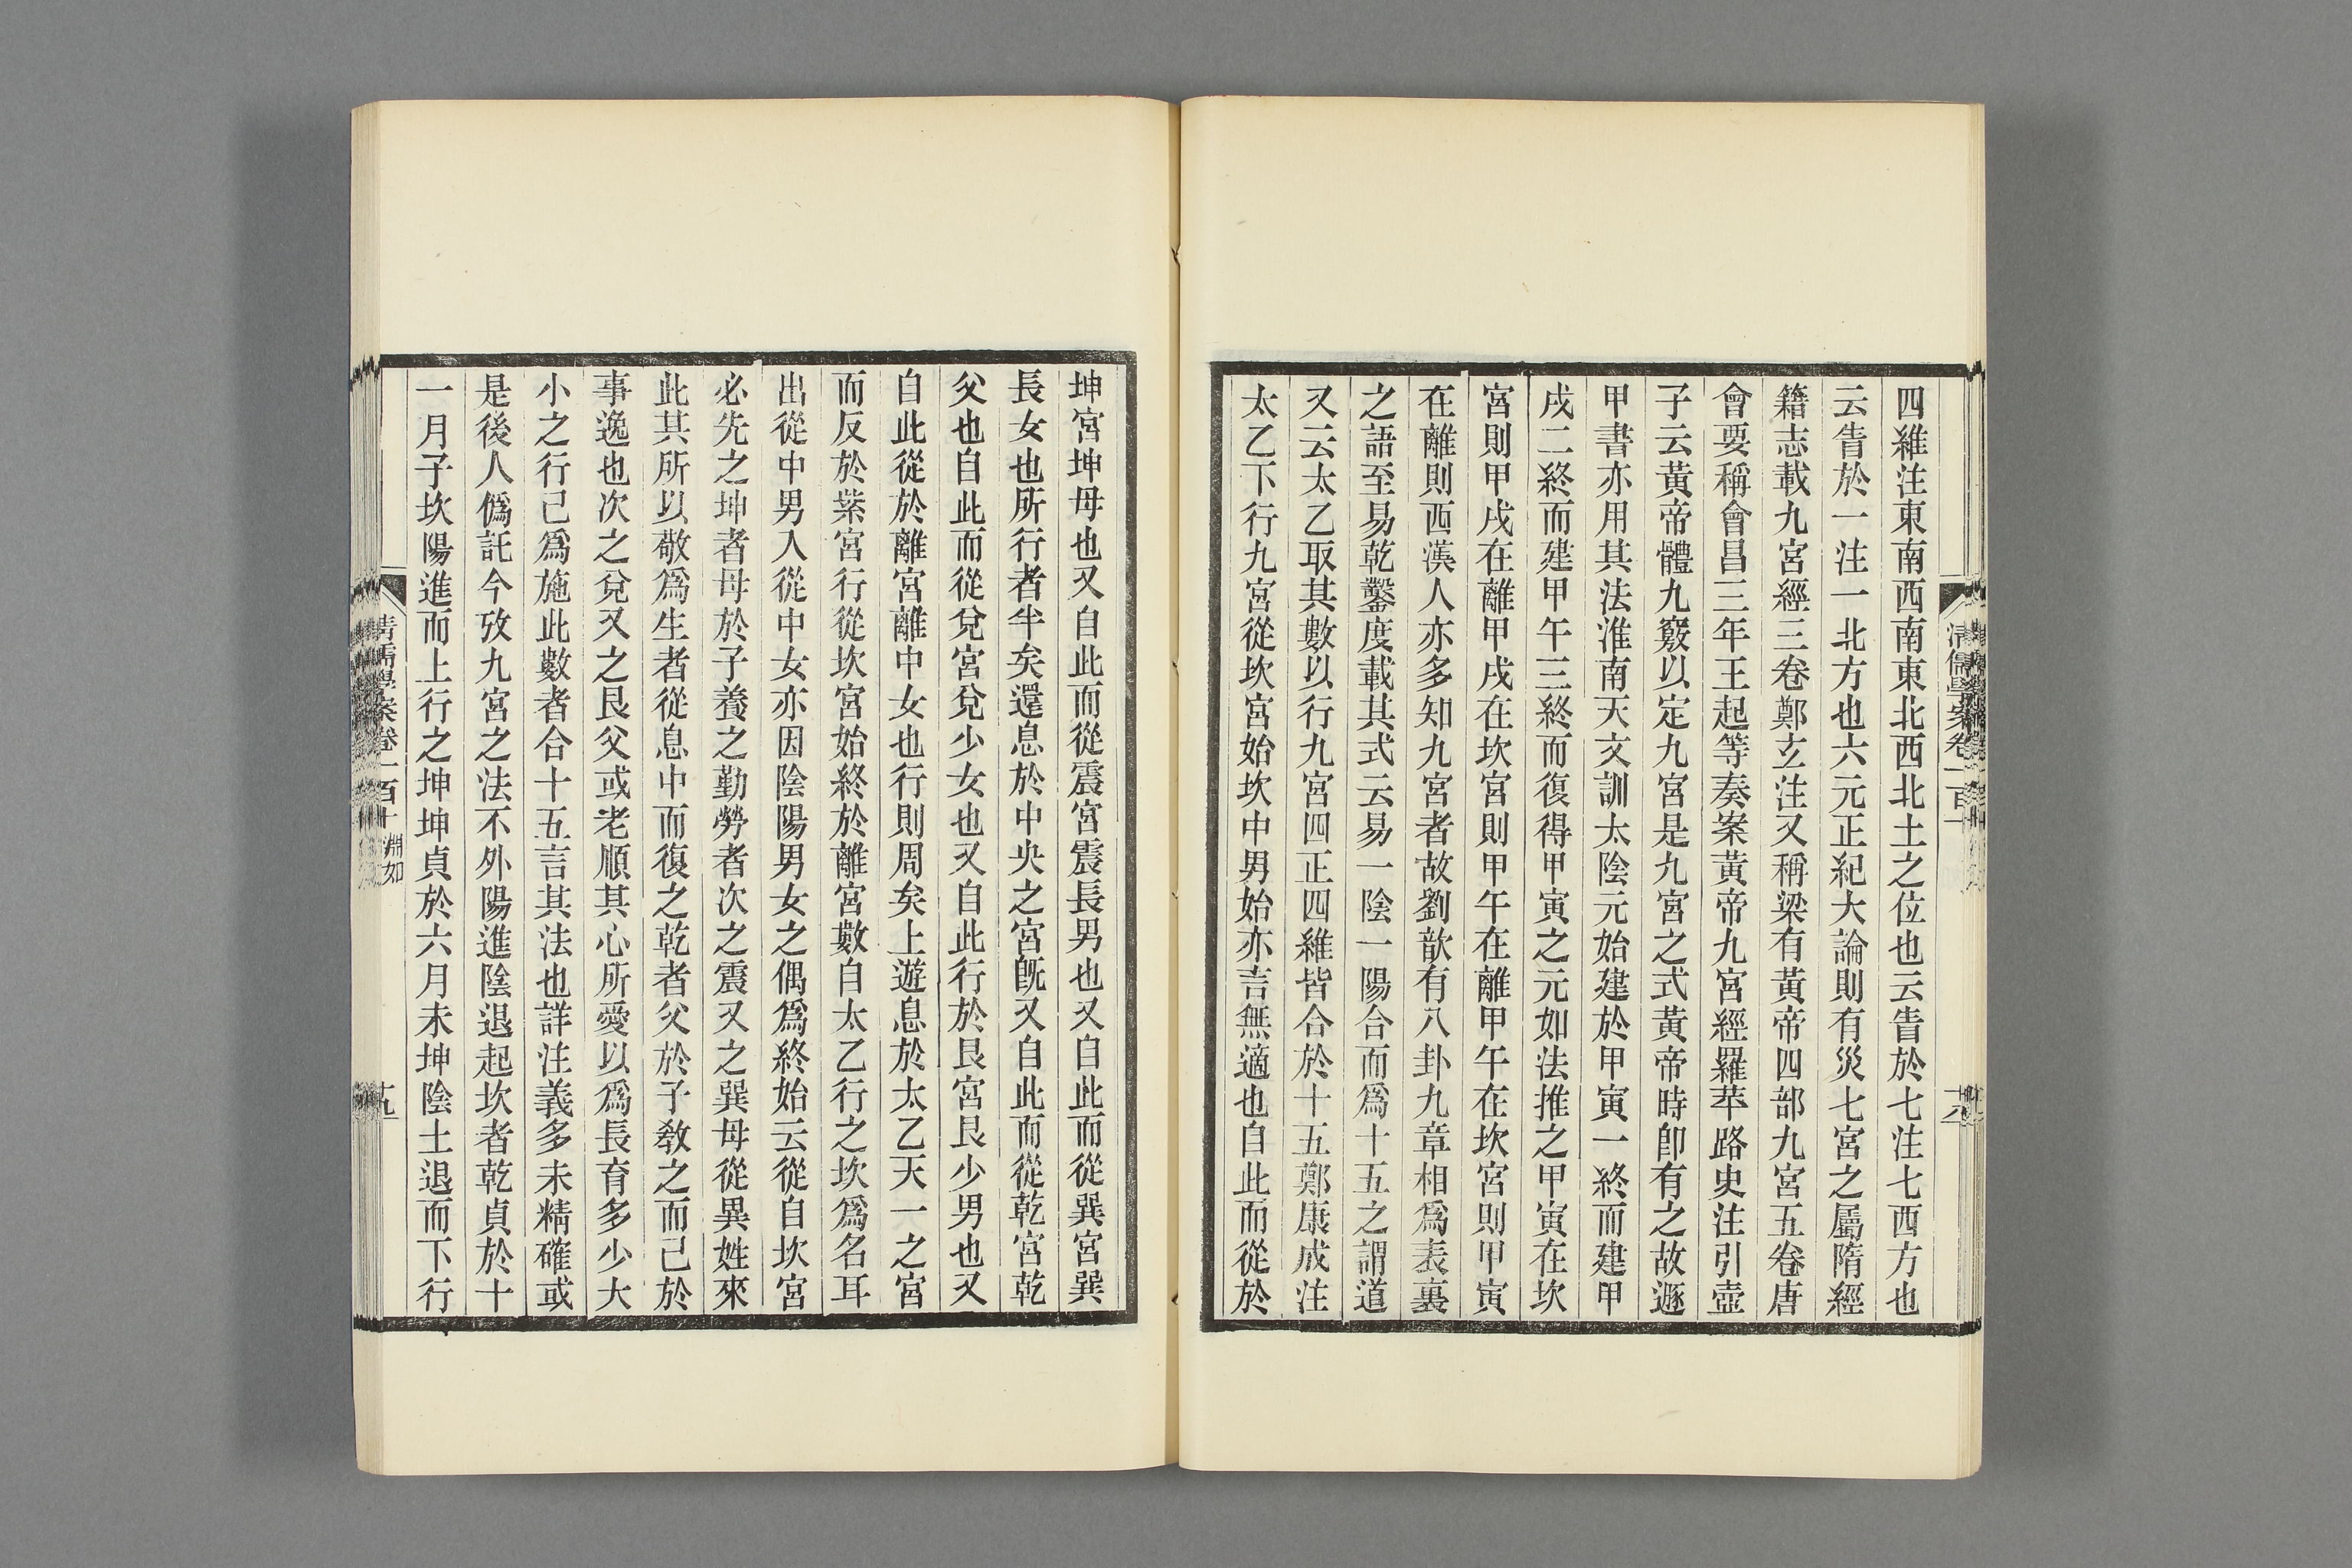 四維注東南西南東北西北土之位也云眚於七注七西方也
云眚於一注一北方也六元正紀大論則有災七宮之屬隋經
籍志載九宮經三卷鄭玄注又稱梁有黃帝四部九宮五卷唐
會要稱會昌三年王起等奏案黃帝九宮經羅苹路史注引壺
子云黃帝體九竅以定九宮是九宮之式黃帝時卽有之故遯
甲書亦用其法淮南天文訓太陰元始建於甲寅一終而建甲
戌二終而建甲午三終而復得甲寅之元如法推之甲寅在坎
宮則甲戌在離甲戌在坎宮則甲午在離甲午在坎宮則甲寅
在離則西漢人亦多知九宮者故劉歆有八卦九章相爲表裏
之語至易乾鑿度載其式云易一陰一陽合而爲十五之謂道
又云太乙取其數以行九宮四正四維皆合於十五鄭康成注
太乙下行九宮從坎宮始坎中男始亦言無適也自此而從於
坤宮坤母也又自此而從震宮震長男也又自此而從巽宮巽
長女也所行者半矣還息於中央之宮旣又自此而從乾宮乾
父也自此而從兌宮兌少女也又自此行於艮宮艮少男也又
自此從於離宮離中女也行則周矣上遊息於太乙天一之宮
而反於紫宮行從坎宮始終於離宮數自太乙行之坎爲名耳
出從中男入從中女亦因陰陽男女之偶爲終始云從自坎宮
必先之坤者母於子養之勤勞者次之震又之巽母從異姓來
此其所以敬爲生者從息中而復之乾者父於子敎之而己於
事逸也次之兌又之艮父或老順其心所愛以爲長育多少大
小之行己爲施此數者合十五言其法也詳注義多未精確或
是後人僞託今攷九宮之法不外陽進陰退起坎者乾貞於十
一月子坎陽進而上行之坤坤貞於六月未坤陰土退而下行
清儒學案卷一百十
淵如
十九